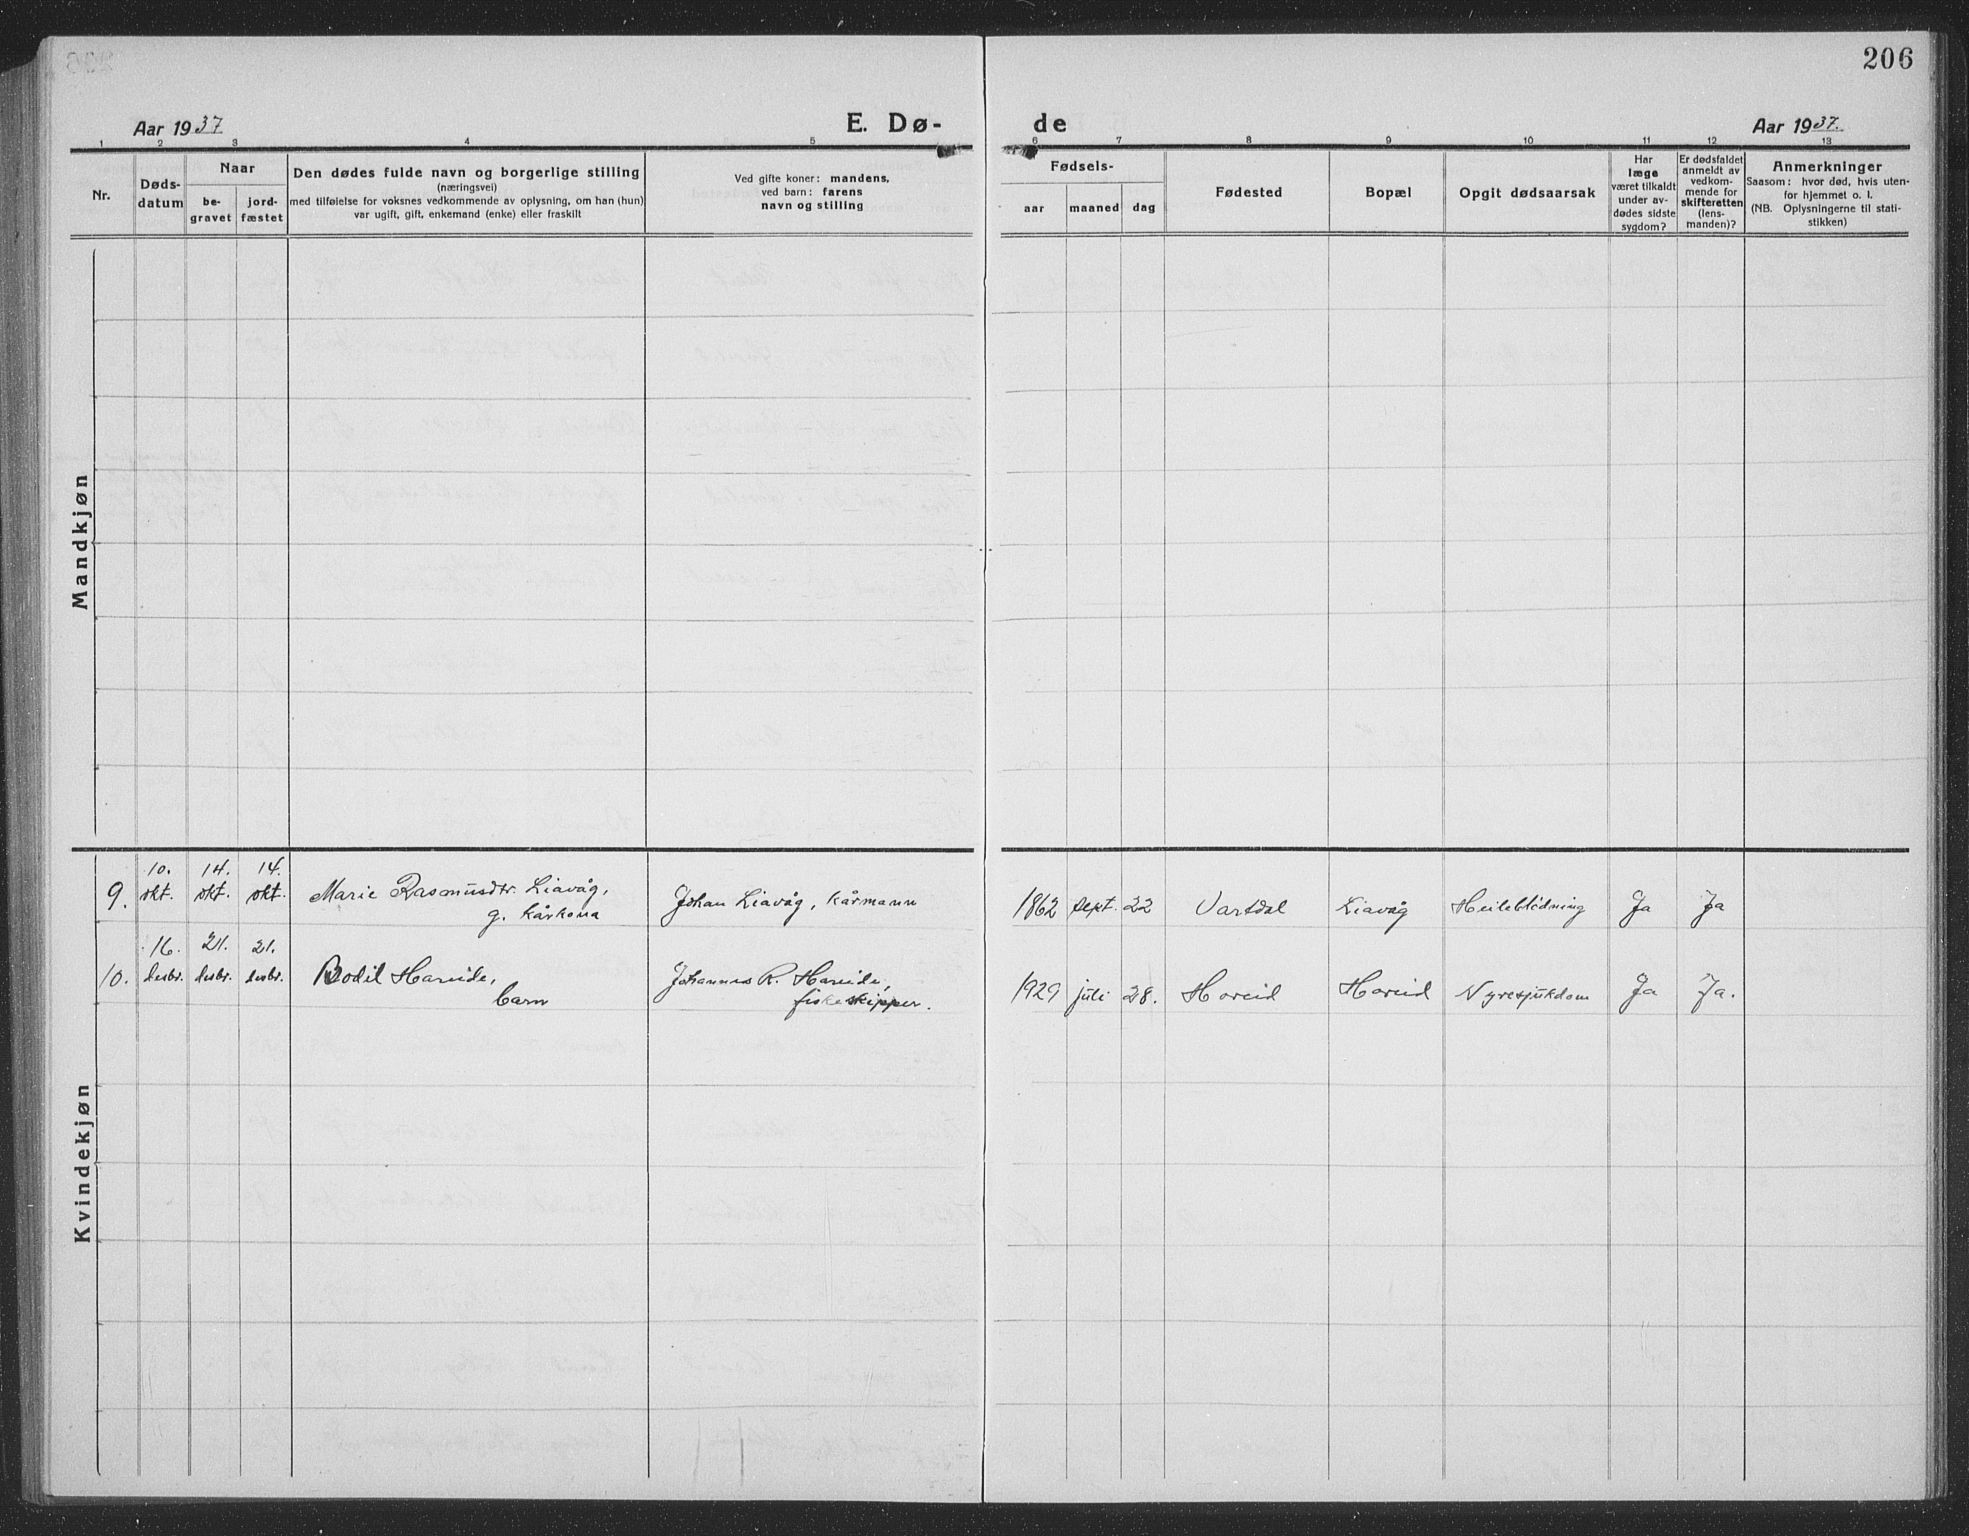 206
Aar 1937
E. Dø-
de
Aar 1937.
1 2 3 4 5 6 7 8 9 10 11 12 13
Nr.
Døds-
datum
Naar
be-
gravet
jord-
fæstet
Den dødes fulde navn og borgerlige stilling
(næringsvei)
med tilføielse for voksnes vedkommende av oplysning, om han (hun)
var ugift, gift, enkemand (enke) eller fraskilt
Ved gifte koner: mandens,
ved barn: farens
navn og stilling
Fødsels-
aar
maaned
dag
Fødested
Bopæl
Opgit dødsaarsak
Har
læge
været tilkaldt
under av-
dødes sidste
sygdom?
Er dødsfaldet
anmeldt av
vedkom-
mende for
skifteretten
(lens-
manden)?
Anmerkninger
Saasom: hvor død, hvis uten-
for hjemmet o. l.
(NB. Oplysningerne til stati-
stikken)
Mandkjøn
Kvindekjøn
10. 14. 14.
9. okt. okt. okt. Marie Rasmusdtr. Liavåg, Johan Liavåg, kårmann 1862 sept. 22 Vartdal Liavåg Heileblödning Ja Ja
g. kårkona
16. 21. 21.
10. desbr. desbr. desbr. Bodil Hareide, Johannes R. Hareide, 1929 juli 28. Hareid Hareid Nyresjukdom Ja Ja.
barn fiskeskipper.